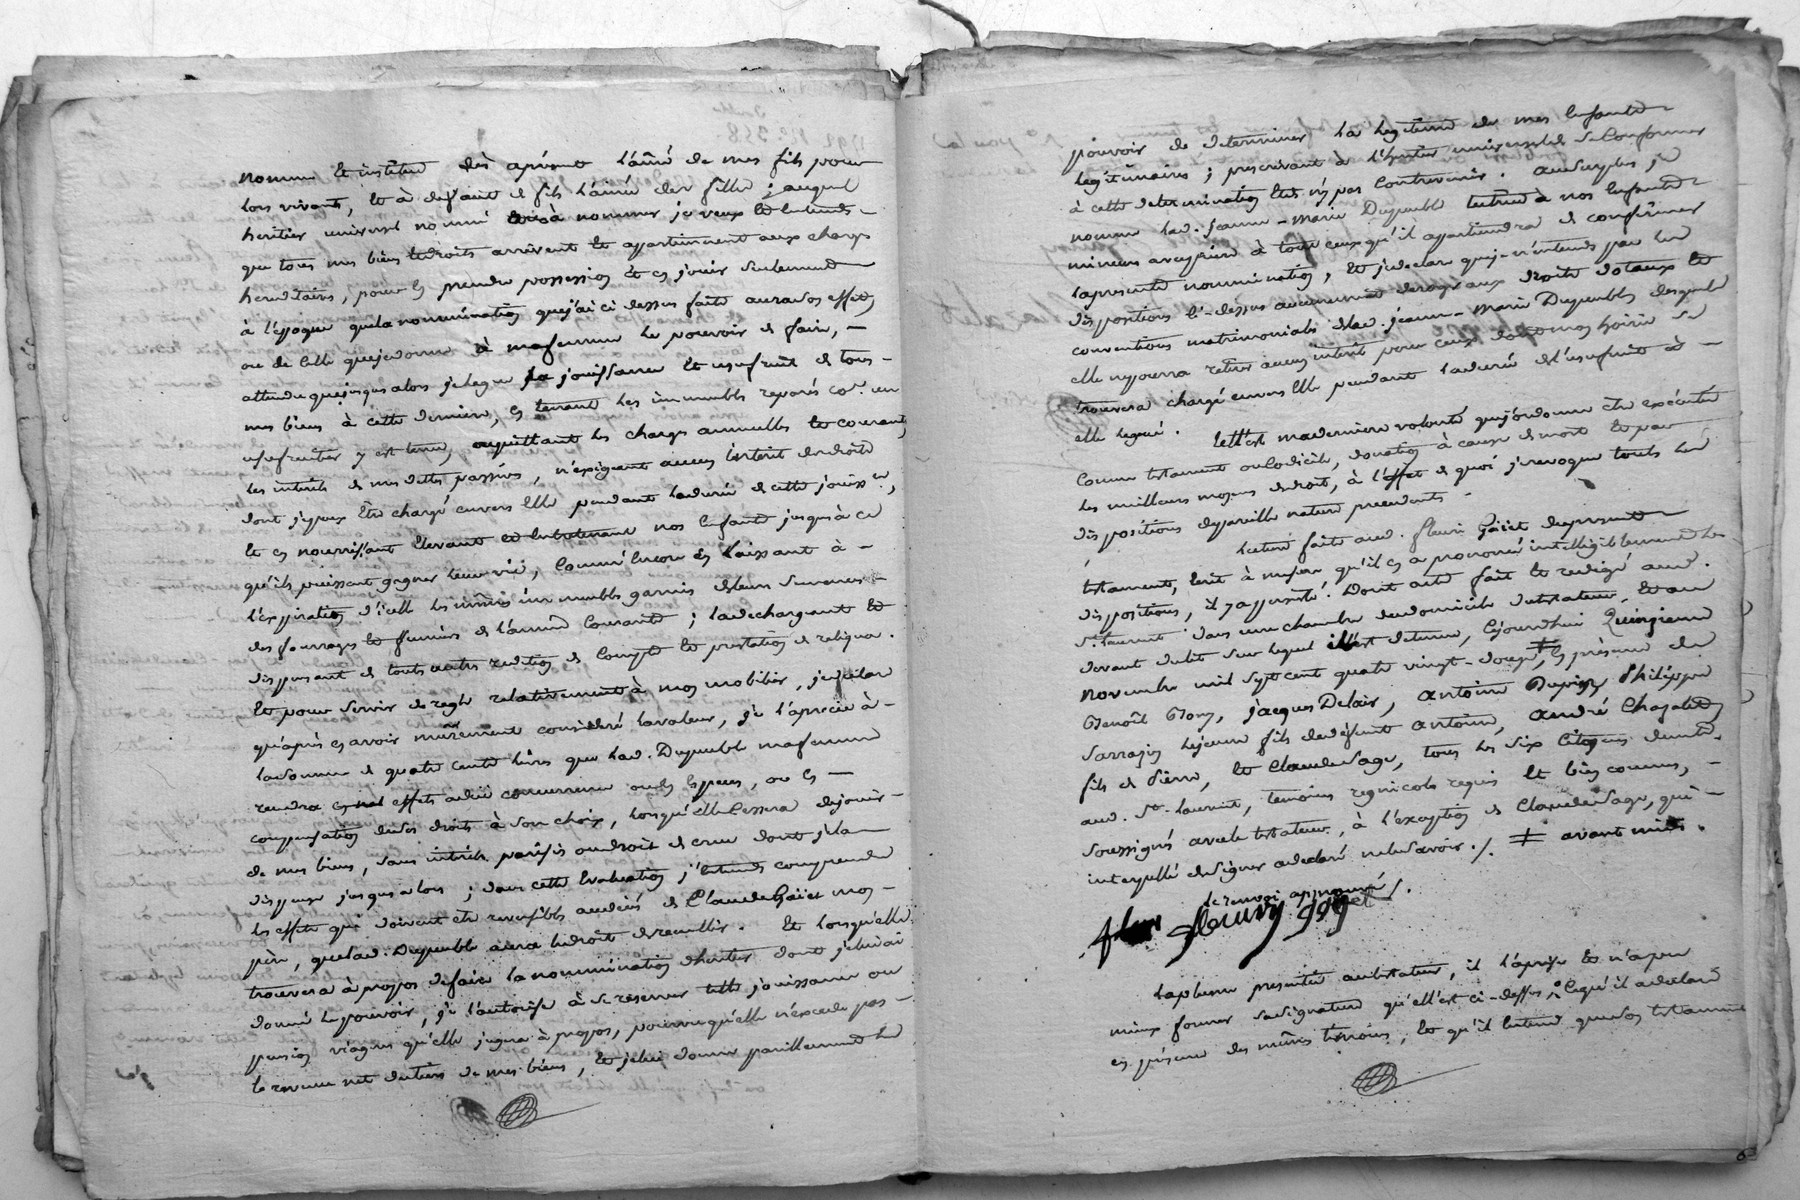 nomme et institue dès aprésent l'ainé de mes fils pour
lors vivant, et à deffaut de fils l'ainée des filles ; auquel
heritier universel nommé ou à nommer je veux et entends
que tous mes biens et droits arrivent et appartiennent aux charges
hereditaires, pour en prendre possession et en jouir seulement
à l'époque que la nomination que j'ai ci dessus faite aura son effet
ou de celle que je donne à ma femme le pouvoir de faire,
attendu que jusques alors je legue la jouissance et usufruit de tous
mes biens à cette derniere, en tenant les immeubles reparés co.e un
usufruitier y est tenu, acquittant les charges annuelles et courantes
les interêts de mes dettes passives, n'exigeant aucun interêt des droits
dont je peux être chargé envers elle pendant la durée de cette jouiss.ce,
et en nourrissant elevant et entretenant nos enfants jusqu'à ce
qu'ils puissent gagner leur vie, comme encore en laissant à
l'expiration d'icelle les mêmes immeubles garnis de leurs semences
des fourrages et fumiers de l'année courante ; la dechargeant et
dispensant de toute autre reddition de compte et prestation de reliqua.
Et pour servir de regle relativement à mon mobilier, je declare
qu'après en avoir mûrement consideré la valeur, je l'aprecie à
la somme de quatre cents livres que lad. Dupeuble ma femme
rendra en mes effets à due concurrence ou en especes, ou en
compensation de ses droits à son choix, lorsqu'elle cessera de jouir
de mes biens, sans interêts parisis ou droit de crue dont je la
dispense jusques alors ; dans cette evaluation j'entends comprendre
les effets qui doivent être reversibles au decès de Claude Gaiet mon
père, que lad. Dupeuble aura le droit de recueillir. Et lorsqu'elle
trouvera à propos de faire la nomination d'heritier dont je lui ai
donné le pouvoir, je l'autorise à se reserver telle jouissance ou
pension viagere qu'elle jugera à propos, pourvu qu'elle n'excede pas
le revenu net du tiers de mes biens, et je lui donne pareillement le
pouvoir de determiner la legitime de mes enfants
legitimaires ; prescrivant à l'heritier universel de se conformer
à cette determination et de n'y pas contrevenir. Au surplus je
nomme lad. Jeanne-Marie Dupeuble tutrice à nos enfants
mineurs avec priere à tous ceux qu'il appartiendra de confirmer
la presente nomination, et je declare que je n'entends par les
dispositions ci-dessus aucunement deroger aux droits dotaux et
conventions matrimoniales de lad. Jeanne-Marie Dupeuble desquels
elle ne pourra retirer aucun interêt pour ceux dont mon hoirie se
trouvera chargé envers elle pendant la durée de l'usufruit à
elle legué. Telle est ma derniere volonté que j'ordonne être executée
comme testament ou codicile, donation à cause de mort et par
les meilleurs moyens de droit, à l'effet de quoi je revoque toutes les
dispositions de pareille nature precedentes.
Lecture faite aud. Fleuri Gaiet du present
testament, écrit à mesure qu'il en a prononcé intelligiblement les
dispositions, il y a persisté. Dont acte fait et redigé aud.
St. Laurent dans une chambre du domicile du testateur, et au
devant du lit sur lequel il est detenu, cejourdhui quinzieme
novembre mil sept cent quatre vingt-douze ‡, en présence de
Benoît Bony, Jacques Delair, Antoine Dupin, Philippe
Sarrazin le jeune fils de defunt Antoine, André Chazalet
fils de Pierre, et Claude Sage, tous les six citoyens dem.t
aud. St. Laurent, temoins regnicoles requis et bien connus,
soussignés avec le testateur, à l'exception de Claude Sage, qui
interpellé de signer a declaré ne le savoir./. ‡ avant midi.
le renvoi approuvé ./.
fleury gayet
La plume presentée au testateur, il l'a prise et n'a pu
mieux former sa signature qu'elle n'est ci-dessus ; ce qu'il a declaré
en présence des mêmes temoins, et qu'il entend que son testament